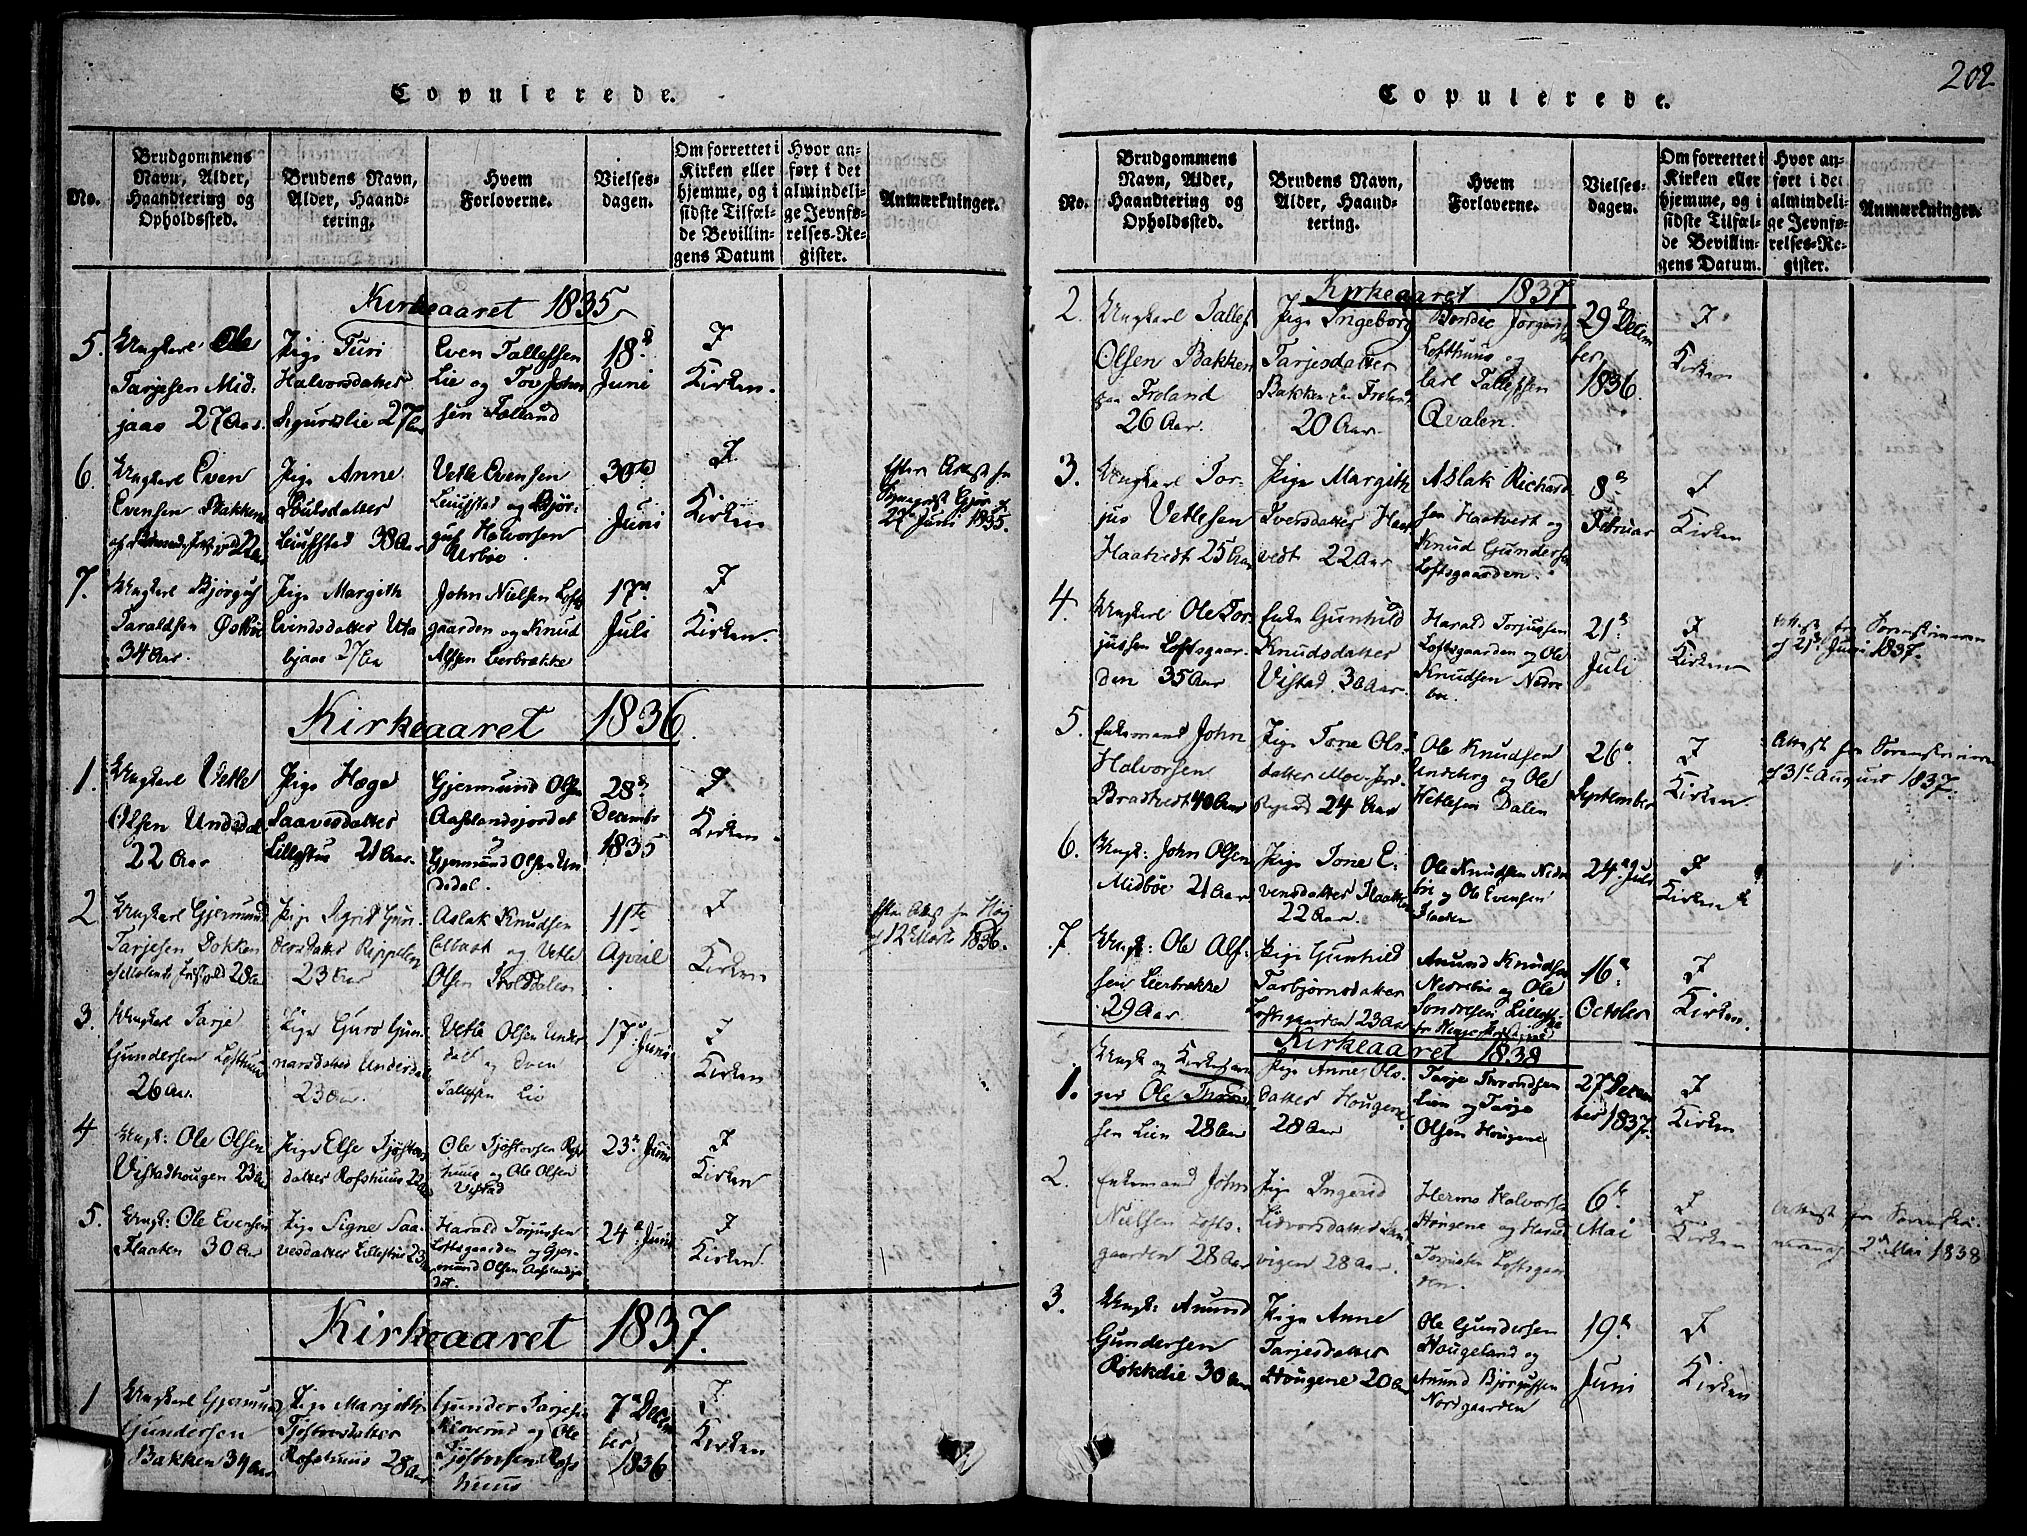 Copulerede.
No.
Brudgommens Navn, Alder, Haandtering og Opholdssted.
Brudens Navn, Alder, Haandtering.
Hvem Forloverne.
Vielsesdagen.
Om forrettet i Kirken eller hjemme, og i sidste Tilfælde Bevillingens Datum
Hvor anført i det almindelige Jevnførelses-Register.
Anmærkninger.
Kirkeaaret 1835
5. Ungkarl Ole
Tarjesen Midjaas 27 Aar.
Pige Turi
Halvorsdatter
Sigurslie 27 Aar
Even Tallefsen
Lie og Tov Johnsen Falland
18de
Juni
I
Kirken.
6. Ungkarl Even
Evensen Bakken
Pige Anne
Poulsdatter
Leiufstad 38 Aar
Vetle Evensen
Leiufstad og Bjørguf Halvorsen
Urbøe
30te
Juni
I
Kirken
Juni 1835.
7. Ungkarl Bjørguf
Taraldsen Østbøe
34 Aar.
Pige Margith
Eivindsdatter Utabjaas 27 Aar
John Nielsen Loftsgaarden og Knud
Alfsen Leerbrække
17de
Juli
I
Kirken.
Kirkeaaret 1836.
1. Ungkarl Vetle
Olsen Undedal
22 Aar
Pige Hæge
Saavesdatter
Lillestus 21 Aar.
Gjermund Olsen
Aaslandsjordet
og
Gjermund Olsen Undedal.
28de
Decembr
1835
I
Kirken.
2 Ungkarl Gjermund
Tarjesen Dokken
28 Aar
Pige Sigrid Gunersdatter
23 Aar
Aslak Knudsen
og Vetle
Olsen
11te
April
I
Kirken
12te Marts 1836.
3. Ungkarl Tarje
Gundersen Lofthuus
26 Aar.
Pige Guro Gunnarsdatter Underdal
23 Aar.
Vetle Olsen Underdal og Even
Tallefsen Lie
17de Juni
I
Kirken
4 Ungk: Ole Olsen
Vistadhougen 23 Aar
Pige Else Tjøstovsdatter Rofshuus 22 Aar
Ole Tjøstovsen Rofshuus og Ole Olsen
Vistad
23de Juni
I
Kirken
5. Ungk: Ole Evensen
Flaaten 30 Aar
Pige Signe Saavesdatter Lillestus 23 Aar
Harald Torjussen
Loftsgaarden og Gjermund Olsen Aaslandsjordet.
24de Juni
I
Kirken.
Kirkeaaret 1837.
1 Ungkarl Gjermund
Gundersen
Bakken 34 Aar
Pige Margith
Tjøstovsdatter
Rofshuus 28 Aar
Gunder Tarjesen
Kleverud og Ole
Tjøstovsen Rofshuus
7de December
1836
I
Kirken
202
Copulerede.
No.
Brudgommens Navn, Alder, Haandtering og Opholdssted.
Brudens Navn, Alder, Haandtering.
Hvem Forloverne.
Vielsesdagen.
Om forrettet i Kirken eller hjemme, og i sidste Tilfælde Bevillingens Datum.
Hvor anført i det almindelige Jevnførelses-Register.
Anmærkninger.
Kirkeaaret 1837
2. Ungkarl Tallef
Olsen Bakken
paa Froland
26 Aar.
Pige Ingeborg
Tarjesdatter
Bakken paa Froland
20 Aar.
Bendic Jørgensen
Lofthuus og
Carl Tallefsen
Qvalen.
29de December
1836.
I
Kirken
3. Ungkarl Torjus Vetlesen
Haatvedt 25 Aar
Pige Margith
Iversdatter Haatvedt 22 Aar
Aslak Richardsen Haatvert og
Knud Gundersen
Loftsgaarden.
8de
Februar
I
Kirken
4. Ungkarl Ole Torjussen Loftsgaarden 35 Aar
Enke Gunhild
Knudsdatter
Vistad 30 Aar.
Harald Torjussen
Loftsgaarden og Ole
Knudsen Nedrebøe
21de
Juli
I
Kirken
Attest fra Sorenskriveren
af 21de Juni 1837.
5. Enkemand John
Halvorsen
Bratvedt 40 Aar
Pige Tone Olsdatter
24 Aar
Ole Knudsen
Undeberg og Ole
Vetlesen Dalen
26de
September
I
Kirken
Attest fra Sorenskriveren
af 31te August 1837.
6. Ungk: John Olsen
Midbøe 21 Aar
Pige Tone Evensdatter Flaatten
22 Aar.
Ole Knudsen Nedrebøe og Ole Evensen
Flaaten
24de Juli
I
Kirken
7 Ungk: Ole Alfsen Leerbrække
29 Aar.
Pige Gunhild
Tarbjørnsdatter
Loftsgaarden 23 Aar
Amund Knudsen
Nedrebøe og Ole
Sondresen Lillestue
16de
October
I
Kirken.
Kirkeaaret 1838
1. Ungk og Kirkesanger Ole Throndsen Lien 28 Aar
Pige Anne Olsdatter Hougene
28 Aar
Tarje Throndsen
Lien og Tarje
Olsen Hougene
27de December 1837.
I
Kirken
2. Enkemand John
Nielsen Loftsgaarden 28 Aar
Pige Ingerid
Lidvorsdatter
28 Aar.
Hermo Halvorsen
Hougene og Harald
Torjusen Loftsgaarden.
6te
Mai
I
Kirken
Attest fra Sorenskriveren af 2de Mai 1838
3. Ungk: Amund
Gundersen
Røkkdie 30 Aar
Pige Anne
Tarjesdatter
Hougene 20 Aar
Ole Gundersen
Hougeland og
Amund Bjørgufsen
Nordgaarden
19de
Juni
I
Kirken